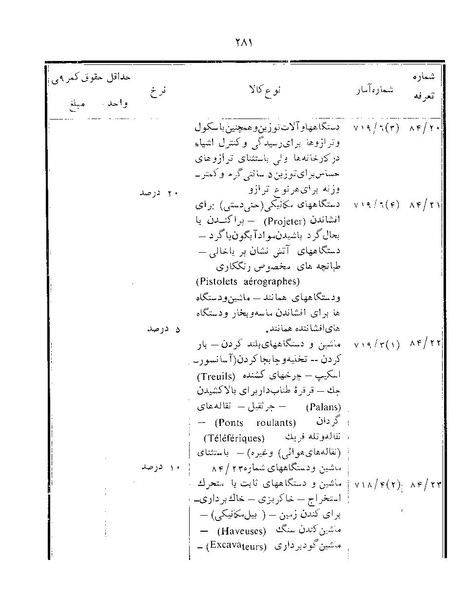 ۲۸۱
شماره
تعرفه
شماره آمار
نوع کالا
نرخ
حداقل حقوق گمرکی
واحد ـ مبلغ
۸۴/۲۰ ۷۱۹/۶(۳) دستگاهها و آلات توزین و همچنین باسکول
و ترازوها برای رسیدگی و کنترل اشیاء
در کارخانه‌ها ولی باستثنای ترازوهای
حساس برای توزین ۵ سانتی گرم و کمتر ـ
وزنه برای هر نوع ترازو ۲۰ درصد
۸۴/۲۱ ۷۱۹/۶(۴) دستگاههای مکانیکی (حتی دستی) برای
افشاندن (Projeter) ـ پراکندن یا
بحال گرد پاشیدن مواد آبگون یا گرد ـ
دستگاههای آتش نشان پر یا خالی ـ
طپانچه های مخصوص رنگکاری
(Pistolets aérographes)
و دستگاههای همانند ـ ماشین و دستگاه
ها برای افشاندن ماسه و بخار و دستگاه
های افشاننده همانند. ۵ درصد
۸۴/۲۲ ۷۱۹/۳(۱) ماشین و دستگاههای بلند کردن ـ بار
کردن -- تخلیه و جابجا کردن (آسانسور ـ
اسکیپ ـ چرخهای کشنده (Treuils)
جك ـ قرقرهٔ طناب دار برای بالا کشیدن
(Palans) ـ جرثقیل ـ نقاله‌های
گردان (Ponts roulants) ـ
نقاله و تله فریك (Téléfériques)
(نقاله‌های هوائی) و غیره) ـ باستثنای
ماشین و دستگاههای شماره ۸۴/۲۳ ۱۰ درصد
۸۴/۲۳ ۷۱۸/۴(۲) ماشین و دستگاههای ثابت یا متحرك
استخراج ـ خاکریزی ـ خاك برداری ـ
برای کندن زمین ـ (بیل مکانیکی) ـ
ماشین کندن سنگ (Haveuses) ـ
ماشین گودبرداری (Excavateurs) ـ